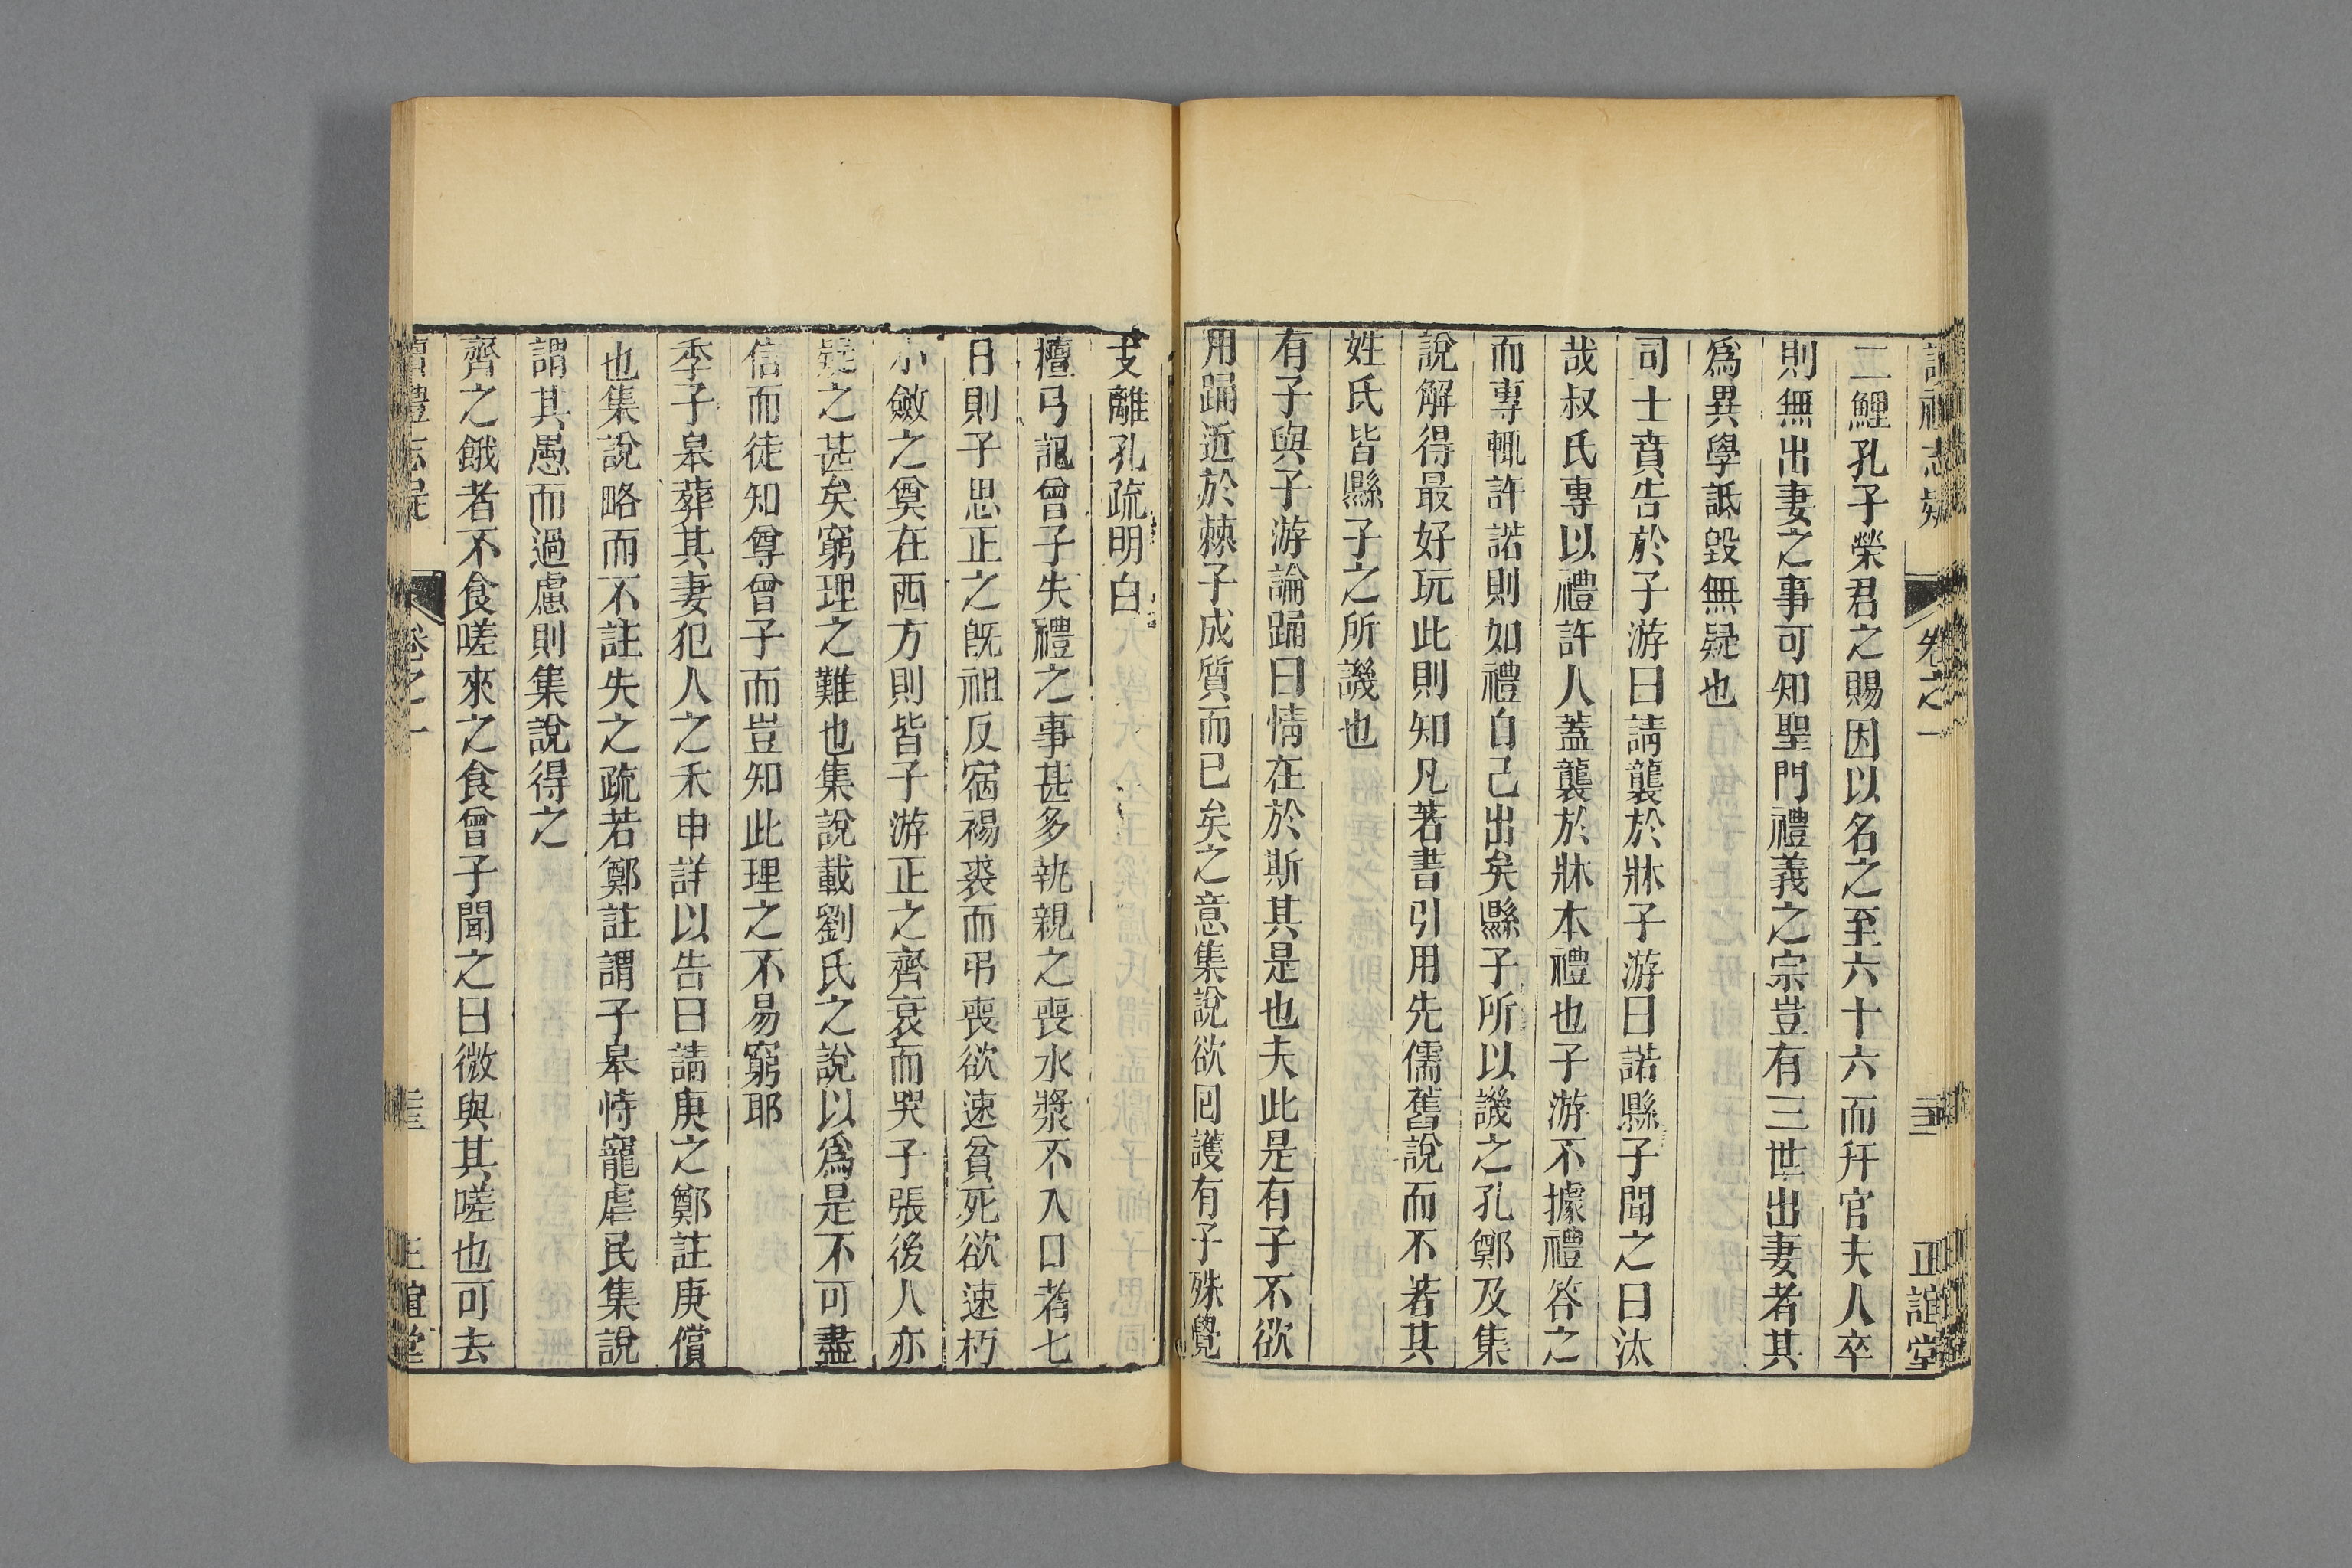 讀禮志疑 卷之一 正誼堂
二鯉孔子榮君之賜因以名之至六十六而幵官夫人卒
則無出妻之事可知聖門禮義之宗豈有三世出妻者其
爲異學詆毀無疑也
司士賁告於子游曰請襲於牀子游曰諾縣子聞之曰汰
哉叔氏專以禮許人蓋襲於牀本禮也子游不據禮答之
而專輒許諾則如禮自己出矣縣子所以譏之孔鄭及集
說解得最好玩此則知凡著書引用先儒舊說而不著其
姓氏皆縣子之所譏也
有子與子游論踊曰情在於斯其是也夫此是有子不欲
用踊近於棘子成質而已矣之意集說欲囘護有子殊覺
支離孔疏明白
檀弓記曾子失禮之事甚多執親之喪水漿不入口者七
日則子思正之旣祖反宿裼裘而弔喪欲速貧死欲速朽
小斂之奠在西方則皆子游正之齊衰而哭子張後人亦
疑之甚矣窮理之難也集說載劉氏之說以爲是不可盡
信而徒知尊曾子而豈知此理之不易窮耶
季子皋葬其妻犯人之禾申詳以告曰請庚之鄭註庚償
也集說略而不註失之疏若鄭註謂子皋恃寵虐民集說
謂其愚而過慮則集說得之
齊之餓者不食嗟來之食曾子聞之曰微與其嗟也可去
讀禮志疑 卷之一 正誼堂